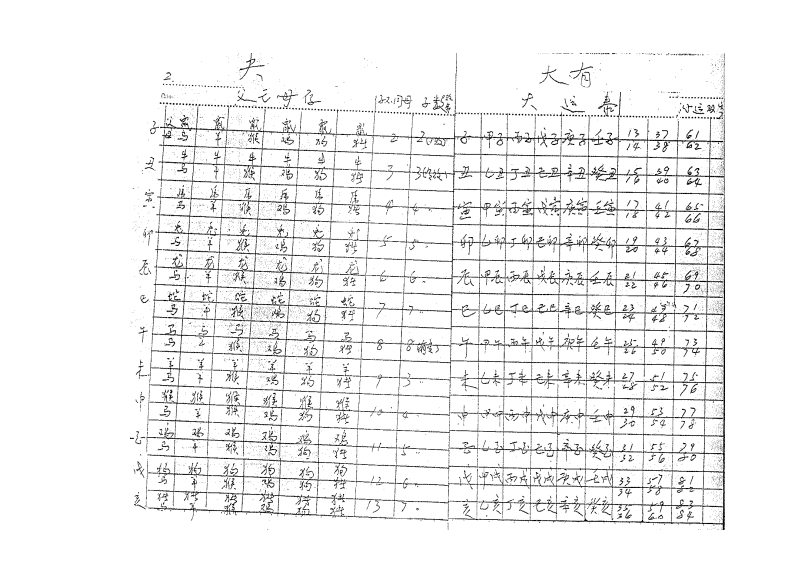 2 夬 大有
父亡母存 子不同母 子数 大运 小运
子 鼠 鼠 鼠 鼠 鼠
马 羊 猴 鸡 狗 猪 2 2 子 甲子 丙子 戊子 庚子 壬子 13 14 37 38 61 62
丑 牛 牛 牛 牛 牛 牛
马 羊 猴 鸡 狗 猪 3 3 丑 乙丑 丁丑 己丑 辛丑 癸丑 15 16 39 40 63 64
寅 虎 虎 虎 虎 虎 虎
马 羊 猴 鸡 狗 猪 4 4 寅 甲寅 丙寅 戊寅 庚寅 壬寅 17 18 41 42 65 66
卯
马 羊 猴 鸡 狗 猪 5 5 卯 乙卯 丁卯 己卯 辛卯 癸卯 19 20 43 44 67 68
辰 龙 龙 龙 龙 龙 龙
马 羊 猴 鸡 狗 猪 6 6 辰 甲辰 丙辰 戊辰 庚辰 壬辰 21 22 45 46 69 70
巳 蛇 蛇 蛇 蛇 蛇 蛇
马 羊 猴 鸡 狗 猪 7 7 巳 乙巳 丁巳 己巳 辛巳 癸巳 23 24 48 71 72
午 马 马 马 马 马 马
马 羊 猴 鸡 狗 猪 8 8 午 甲午 丙午 戊午 庚午 壬午 25 26 49 50 73 74
未 羊 羊 羊 羊 羊 羊
马 羊 猴 鸡 狗 猪 9 3 未 乙未 丁未 己未 辛未 癸未 27 28 51 52 75 76
申 猴 猴 猴 猴 猴 猴
马 羊 猴 鸡 狗 猪 10 4 申 甲申 丙申 戊申 庚申 壬申 29 30 53 54 77 78
酉 鸡 鸡 鸡 鸡 鸡 鸡
马 羊 猴 鸡 狗 猪 11 5 酉 乙酉 丁酉 己酉 辛酉 癸酉 31 32 55 56 79 80
戌 狗 狗 狗 狗 狗 狗
马 羊 猴 鸡 狗 猪 12 6 戌 甲戌 丙戌 戊戌 庚戌 壬戌 33 34 57 58 81 82
亥 猪 猪 猪 猪 猪 猪
马 羊 猴 鸡 狗 猪 13 7 亥 乙亥 丁亥 己亥 辛亥 癸亥 35 36 59 60 83 84